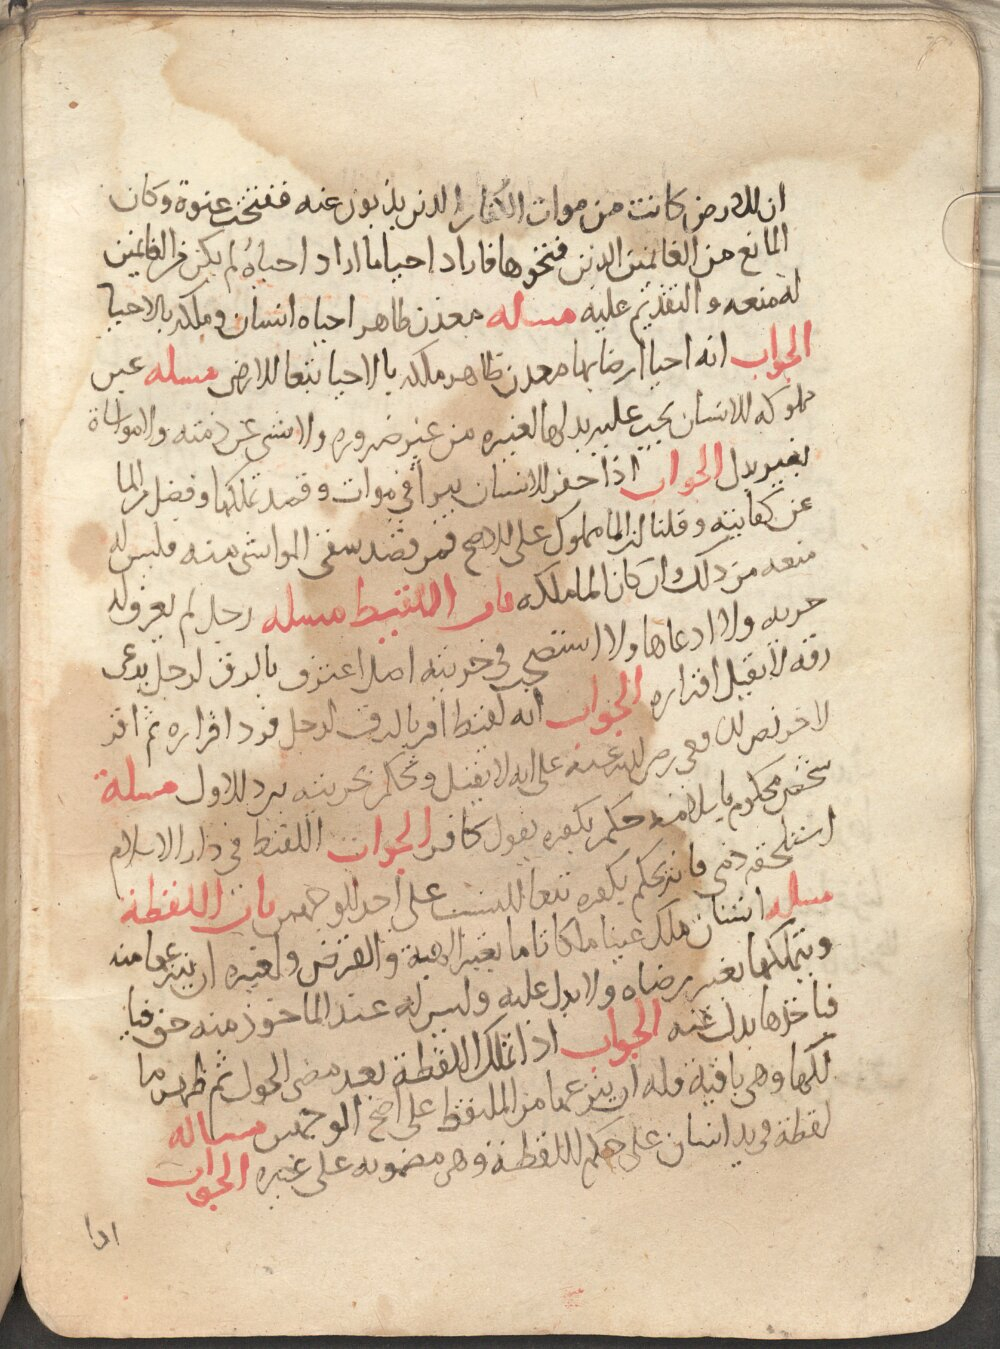 ان الارض كانت من موات الكفار الدىن ىذبون عنه ففتحت عنوة وكان
المانع من الغانمين الدىن فتحوها فاراد احيا ما اراد احياه لم يكن مر الغانمين
له منعه والتقديم عليه مسله معدن ظاهر احياه انسان وملكه بالاحيا
الجواب انه احيا ارضا بها معدن ظاهر ملكه بالاحيا تبعا للارض مسله عين
مملوكه للانسان يجب عليه بدلها لغيره من غير ضروره ولا شى عن ذمته ولا مواساة
بغير بدل الجواب اذا حفر الانسان بيرا في موات وقصد تملكها وفضل مر الما
عن كفايته وقلنا ان الما مملوك على الاصح فمن قصد سقى المواشى منه فليس له
منعه من ذلك وان كان الما ملكه باب اللقيط مسله رجل لم يعرف له
حريه ولا ادعاها ولا استصحب في حريته اصل اعترف بالرق لرجل يدعى
رقه لا يقبل اقراره الجواب انه لقيط اقر بالرق لرجل فرد اقراره ثم اقر
لاخر فص الشافعي رصى الله عنه على انه لا يقبل ويحكم بحريته برد الاول مسلة
شخص محكوم باسلامه حكم بكفره بقول كافر الجواب اللقيط في دار الاسلام
استلحقه ذمي فانه يحكم بكفره تبعا للنسب على احد الوجهين باب اللقطة
مسله انسان ملك عينا ملكا تاما بغير الهبة والقرض ولغيره ان ينتزعها منه
ويتملكها بغير رضاه ولا بدل عليه وليس له عند الماخوذ منه حق فيا
فياخذها بدل عنه الجواب اذا تملك اللقطة بعد مضى الحول ثم ظهر ما
لكها وهى باقية فله ان ينزعها من الملتقط على اصح الوجهين مساله
لقطة في يد انسان على حكم اللقطة وهى مضمونه على غيره الجواب
اذا